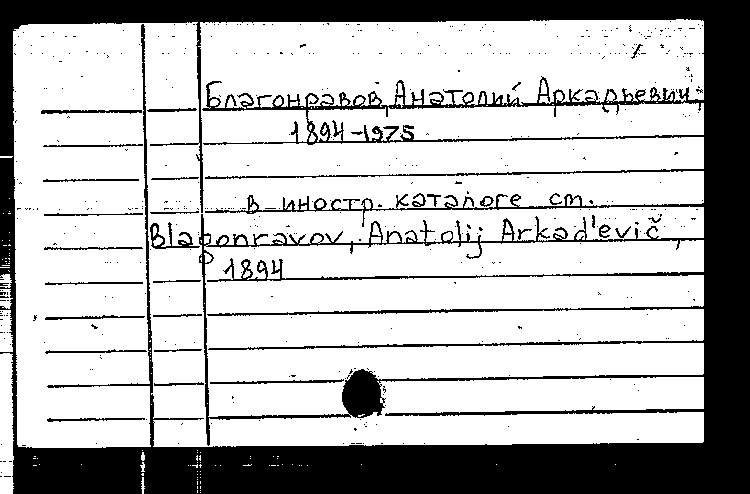 Благонравов, Анатолий Аркадьевич,
1894-1975
в иностр. каталоге ст.
Blagonravov, Anatolij Arkad'evič,
1894